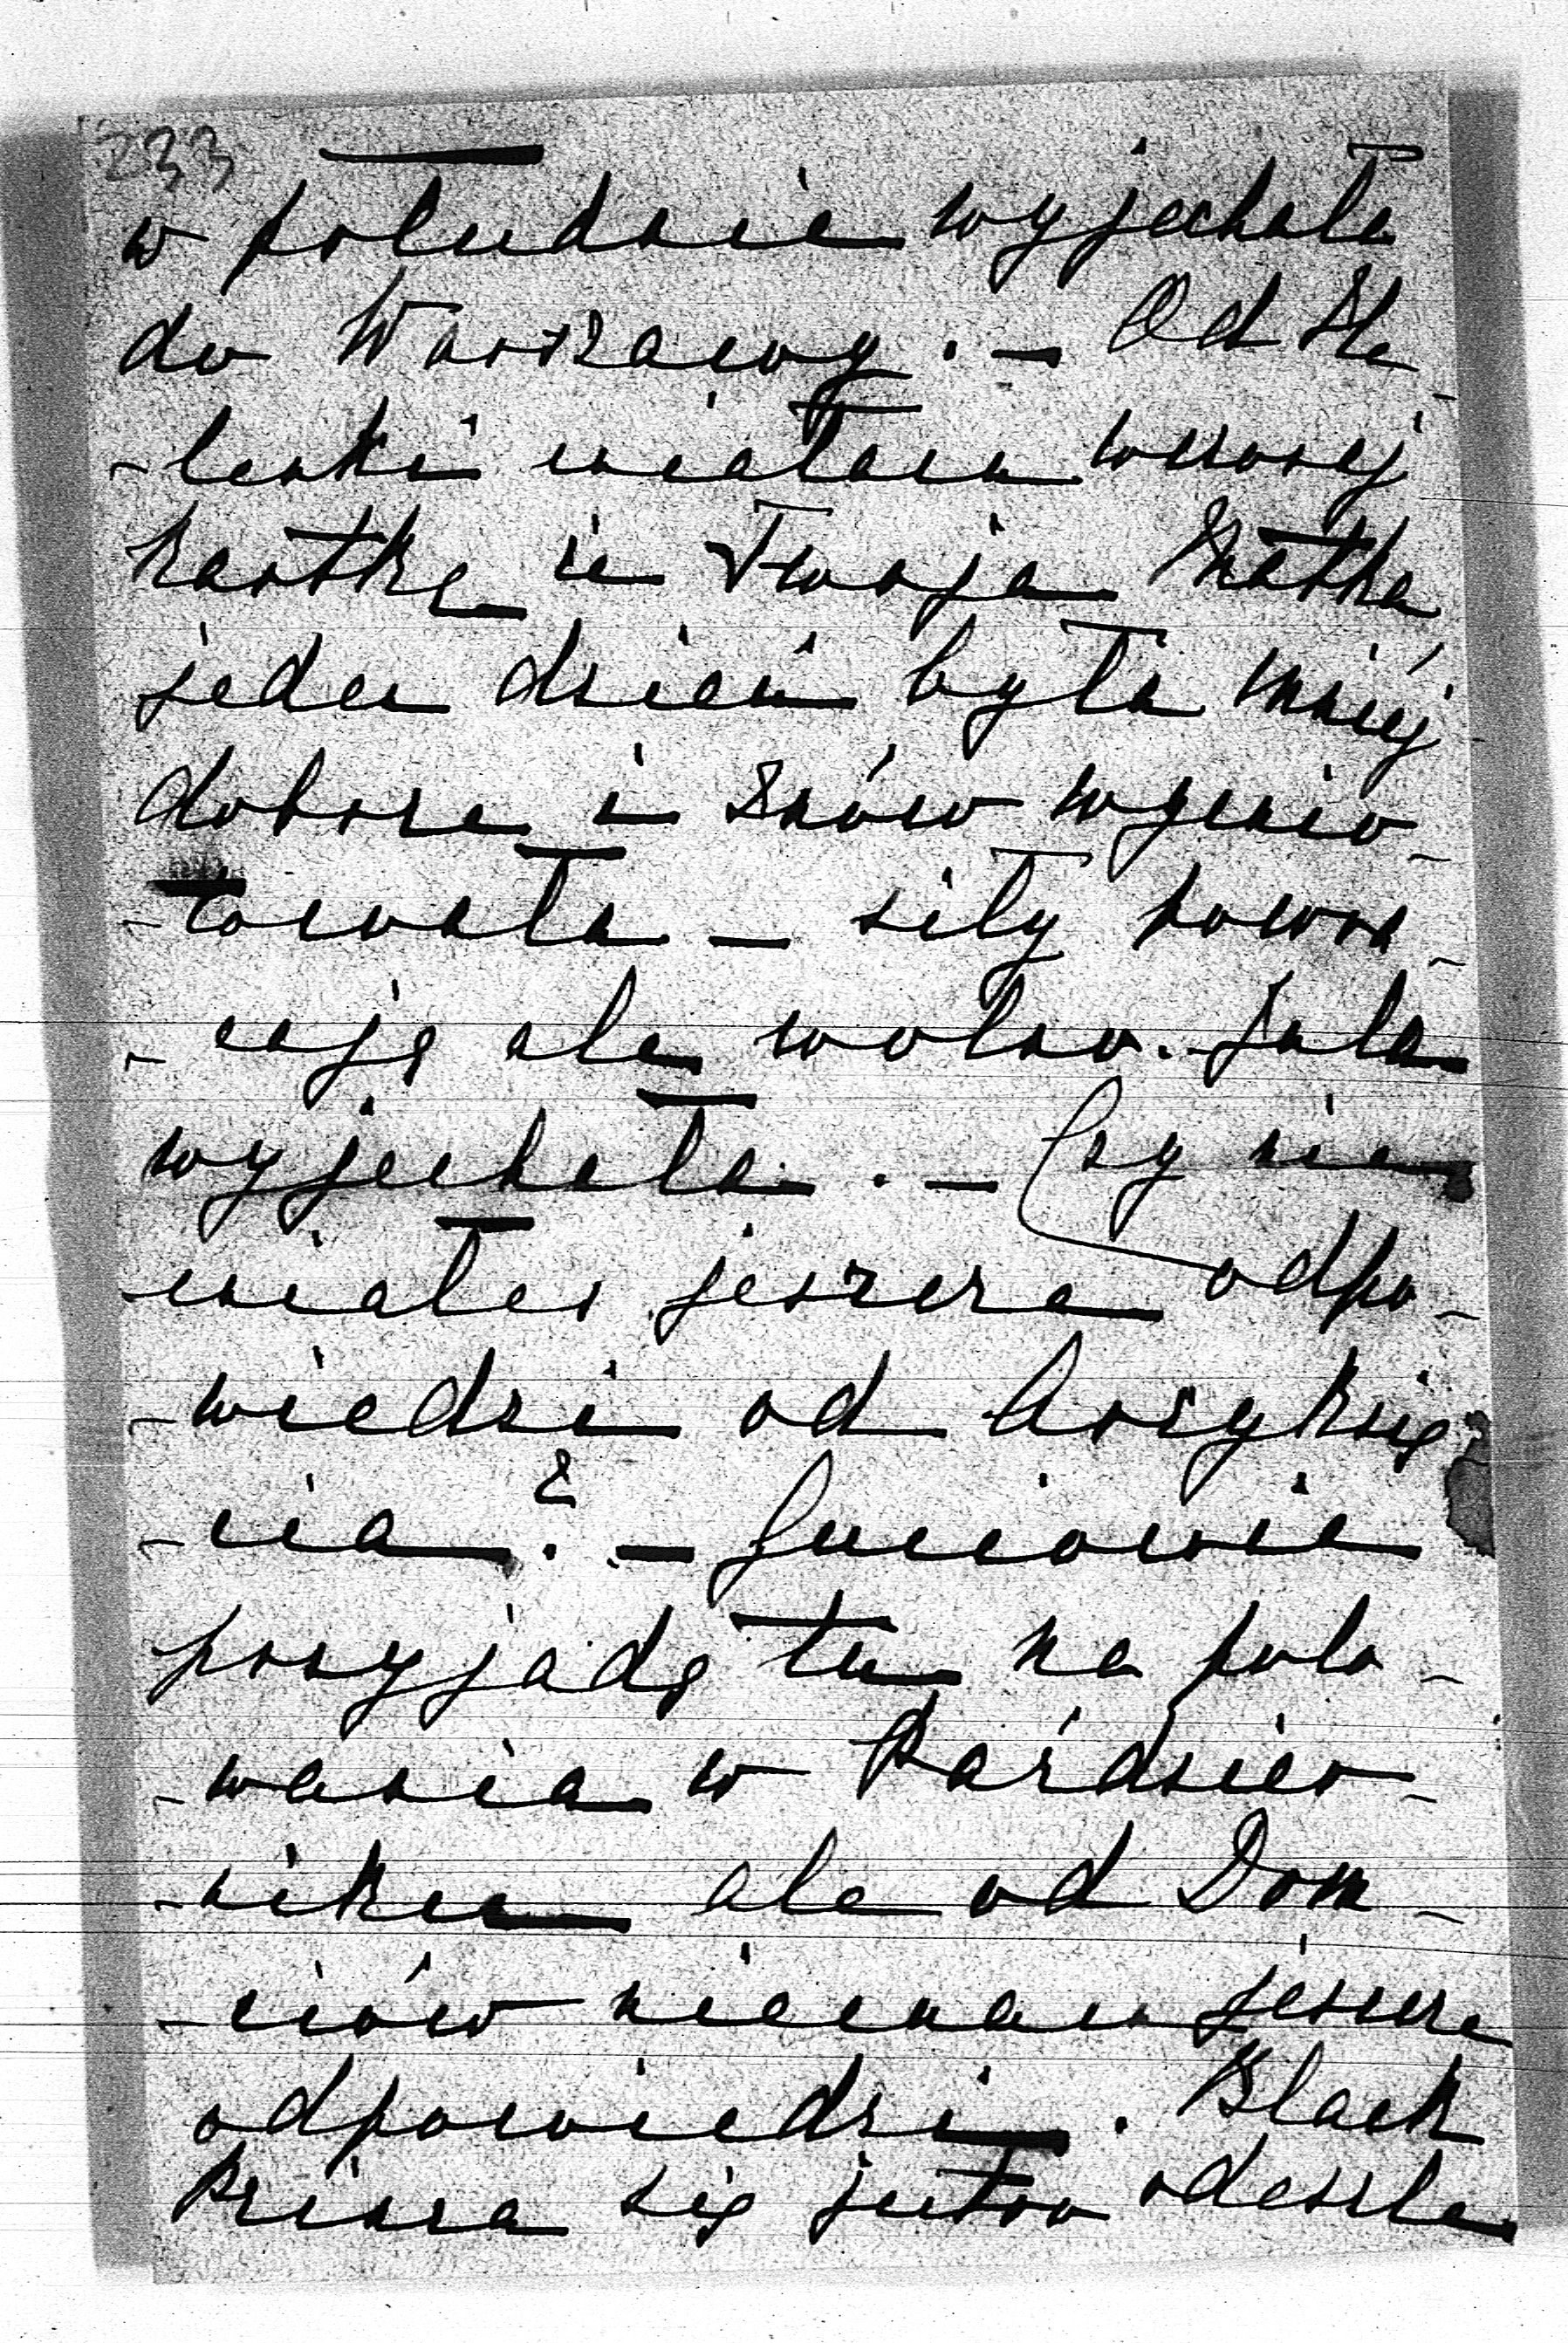 233
w południe wyjechała
do Warszawy. – Od He-
-lenki miałam wczoraj
kartkę że Twoja Matka
jeden dzień była mniéj
dobrze i znów wymio-
-towała – siły powra-
-cają ale wolno. Jula
wyjechała. – Czy nie
miałeś jeszcze odpo-
-wiedzi od Arcyksię-
-cia? – Guciowie
przyjadą tu na polo-
-wania w Paździer-
-niku ale od Dom-
-ciów niemam jeszcze
odpowiedzi. Black
Prinza się jutro odeszle